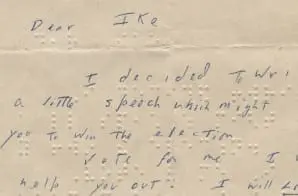 Dear Ike
I decided to wri
a little speech which might
you to win the election
Vote for me I
help you out. I will